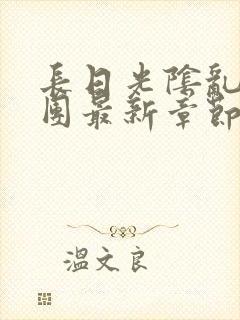 長日光陰亂
團最新章節
溫文良